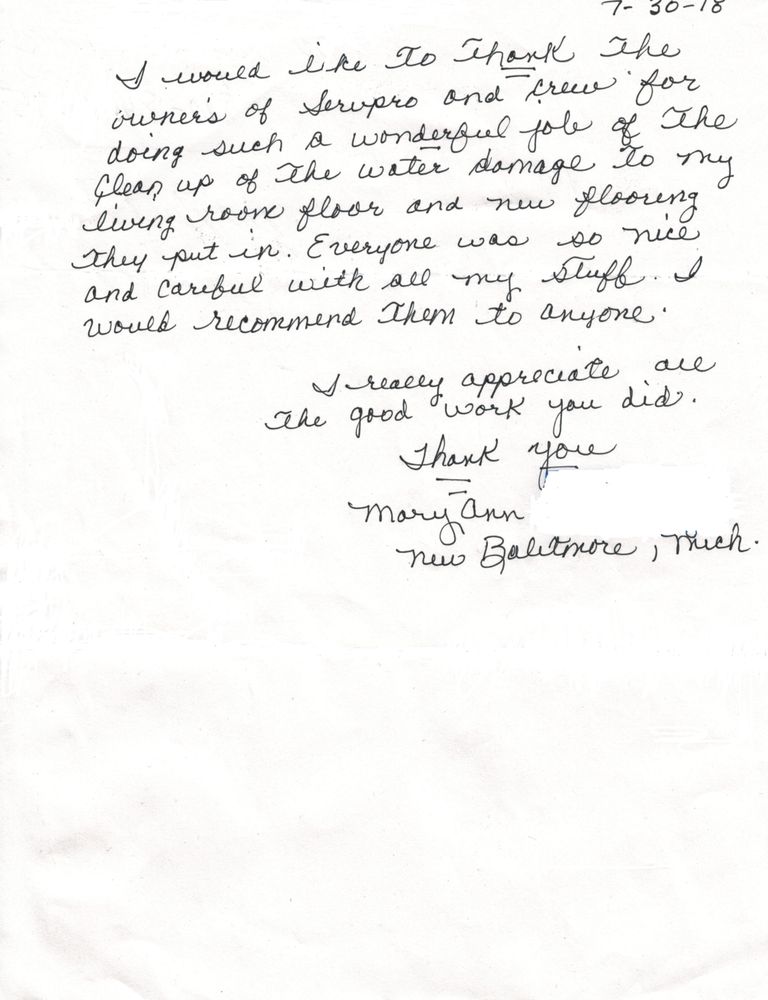 7-30-18
I would like to Thank The
owner's of Servpro and crew for
doing such a wonderful job of The
Clean up of The water damage to my
living room floor and new flooring
They put in. Everyone was so nice
and careful with all my Stuff. I
would recommend Them to anyone.
I really appreciate all
The good work you did.
Thank you
Mary Ann
New Baltimore, Mich.